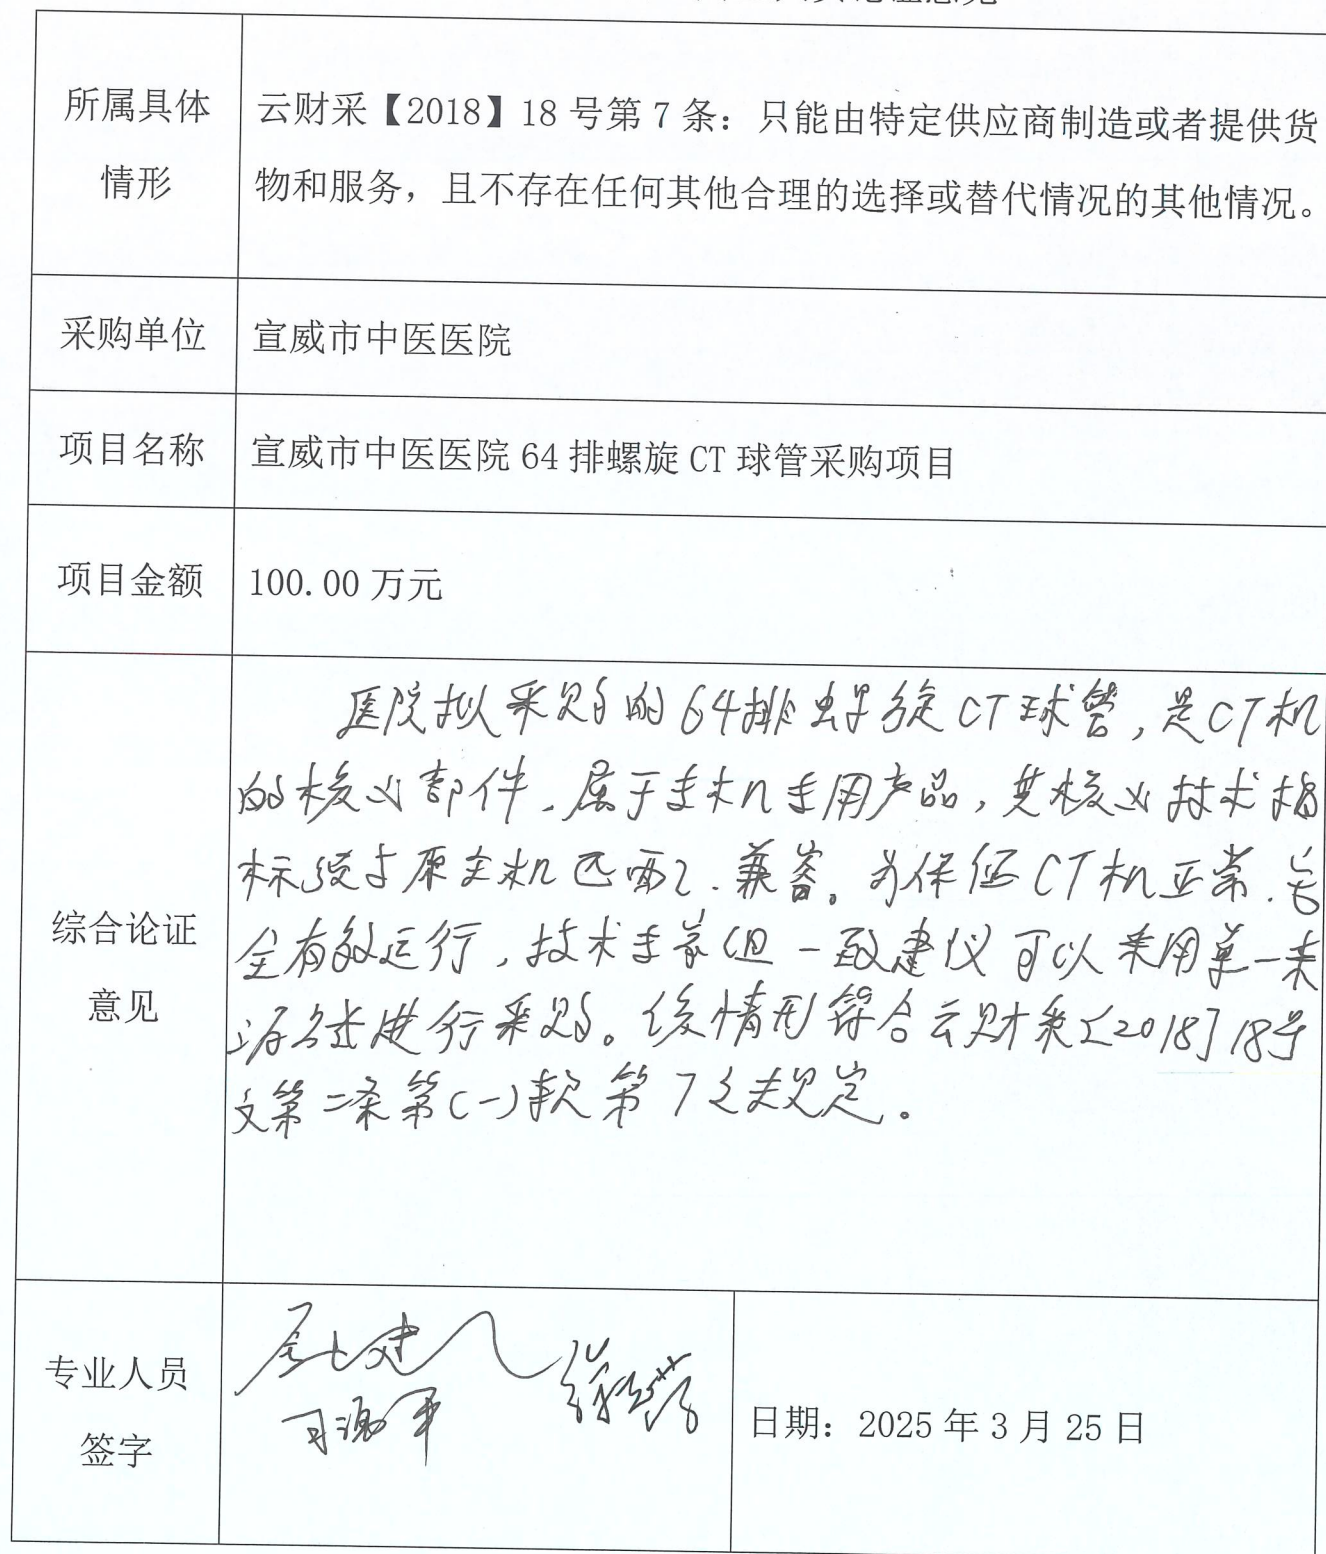 所属具体
情形
云财采【2018】18号第7条：只能由特定供应商制造或者提供货
物和服务，且不存在任何其他合理的选择或替代情况的其他情况。
采购单位
宣威市中医医院
项目名称
宣威市中医医院64排螺旋CT球管采购项目
项目金额
100.00万元
综合论证
意见
医院拟采购的64排螺旋CT球管，是CT机
的核心部件、属于主机专用产品，其核心技术指
标须与原主机匹配、兼容。为保证CT机正常、安
全有效运行，技术专家组一致建议可以采用单一来
源方式进行采购。该情形符合云财采[2018]18号
文第二条第(一)款第7之规定。
专业人员
签字
日期：2025年3月25日